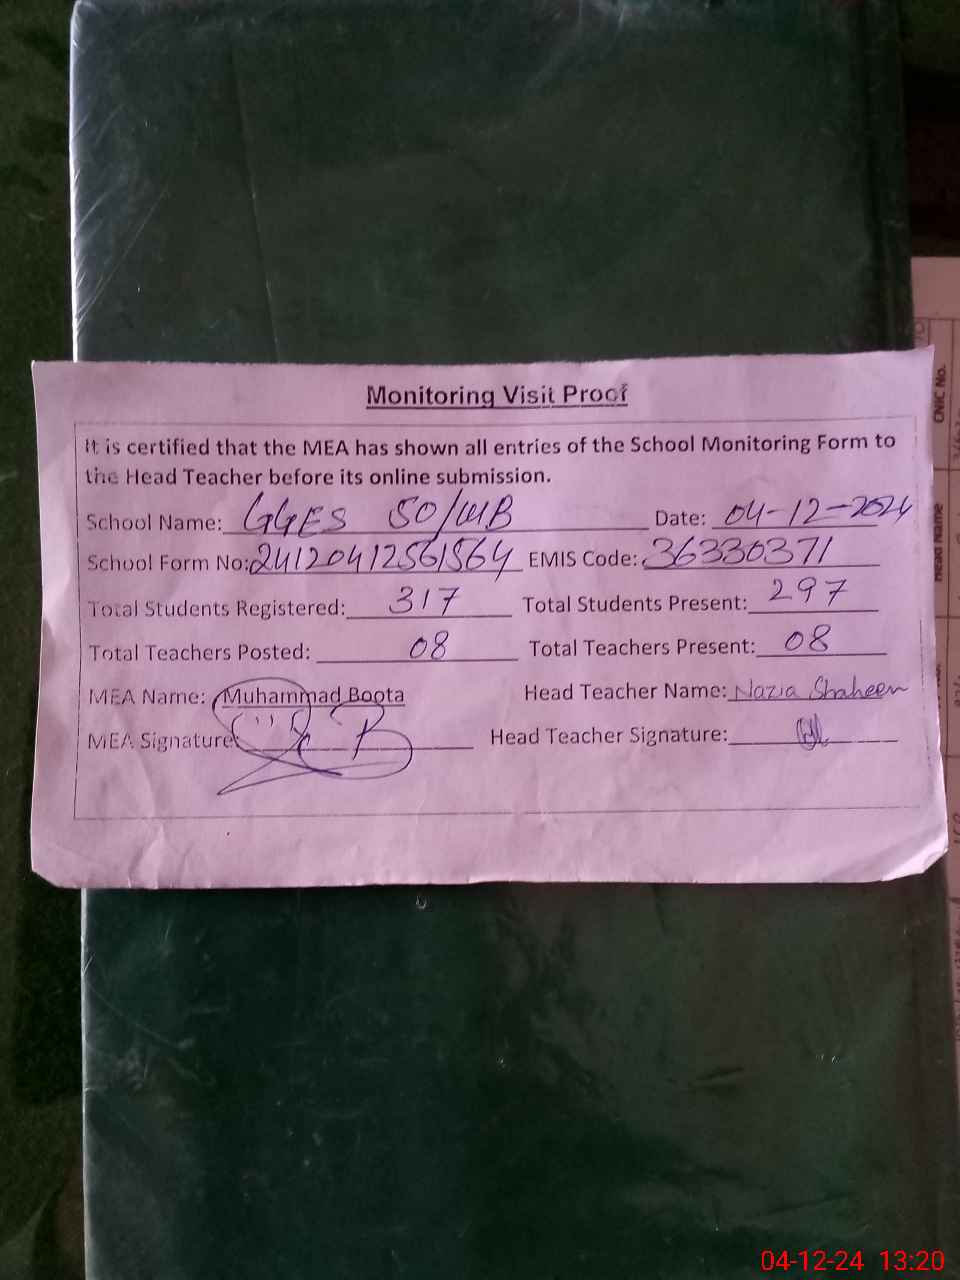 Monitoring Visit Proof
It is certified that the MEA has shown all entries of the School Monitoring Form to
the Head Teacher before its online submission.
School Name: GGES 50/MB Date: 04-12-2024
School Form No: 24120412561564 EMIS Code: 36330371
Total Students Registered: 317 Total Students Present: 297
Total Teachers Posted: 08 Total Teachers Present: 08
MEA Name: Muhammad Boota Head Teacher Name: Nazia Shaheen
MEA Signature: Head Teacher Signature:
CNIC No.
Head Name
04-12-24 13:20